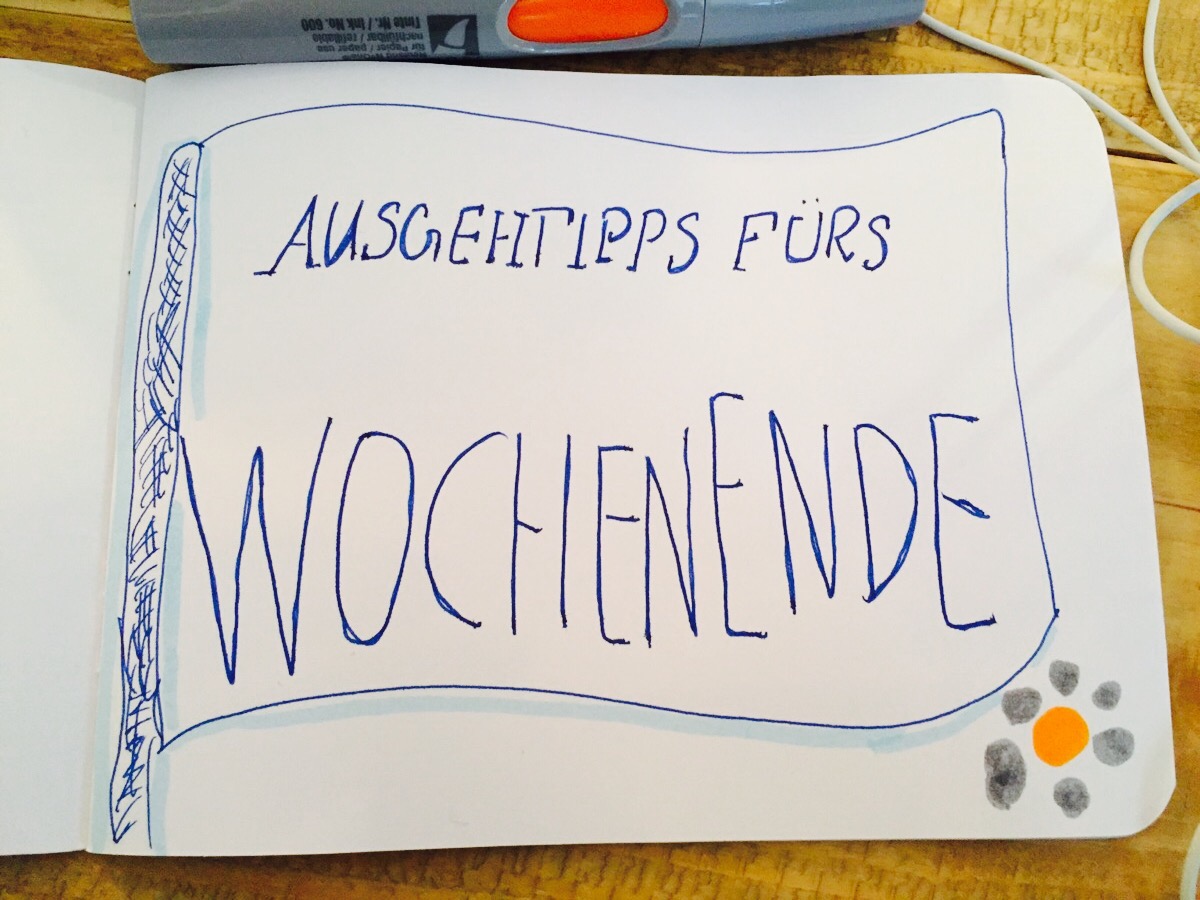 Tinte Nr. / Ink No. 600
nachfüllbar / refillable
für Papier / paper use
AUSGEHTIPPS FÜRS
WOCHENENDE